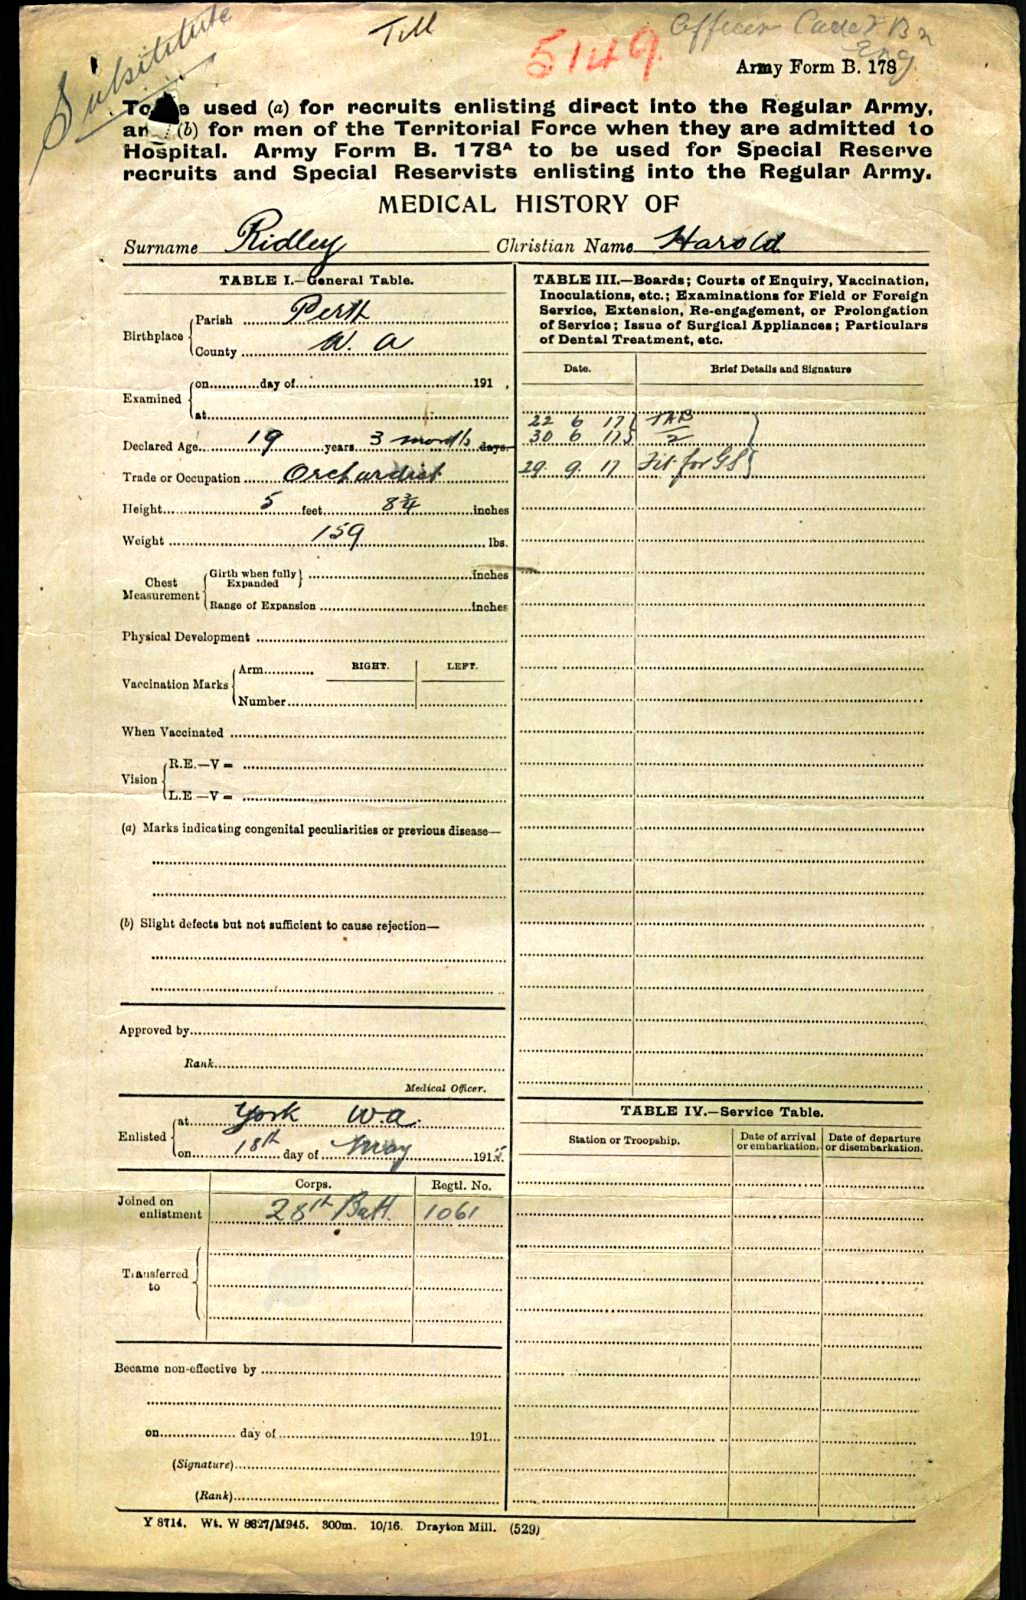 Substitute
Till
5149
Officer Cadet Bn
Eng.
Army Form B. 178
To be used (a) for recruits enlisting direct into the Regular Army,
an (b) for men of the Territorial Force when they are admitted to
Hospital. Army Form B. 178A to be used for Special Reserve
recruits and Special Reservists enlisting into the Regular Army.
MEDICAL HISTORY OF
Surname Ridley Christian Name Harold
TABLE I.—General Table.
Birthplace Parish Perth
County W. A
Examined on day of 191 ,
at
Declared Age 19 years 3 months days
Trade or Occupation Orchardist
Height 5 feet 8 3/4 inches
Weight 159 lbs.
Chest Measurement Girth when fully Expanded inches
Range of Expansion inches
Physical Development
Vaccination Marks Arm RIGHT. LEFT.
Number
When Vaccinated
Vision R.E.—V =
L.E—V =
(a) Marks indicating congenital peculiarities or previous disease—
(b) Slight defects but not sufficient to cause rejection—
Approved by
Rank
Medical Officer.
Enlisted at York W.A.
on 18th day of May 1915
Corps. Regtl. No.
Joined on enlistment 28th Batt. 1061
Transferred to
Became non-effective by
on day of 191
(Signature)
(Rank)
TABLE III.—Boards; Courts of Enquiry, Vaccination,
Inoculations, etc.; Examinations for Field or Foreign
Service, Extension, Re-engagement, or Prolongation
of Service; Issue of Surgical Appliances; Particulars
of Dental Treatment, etc.
Date. Brief Details and Signature
22 6 17 TAB
30 6 17 2
29. 9. 17 Fit for GS
TABLE IV.—Service Table.
Station or Troopship. Date of arrival or embarkation. Date of departure or disembarkation.
Y 8714. Wt. W 8827/M945. 300m. 10/16. Drayton Mill. (529)